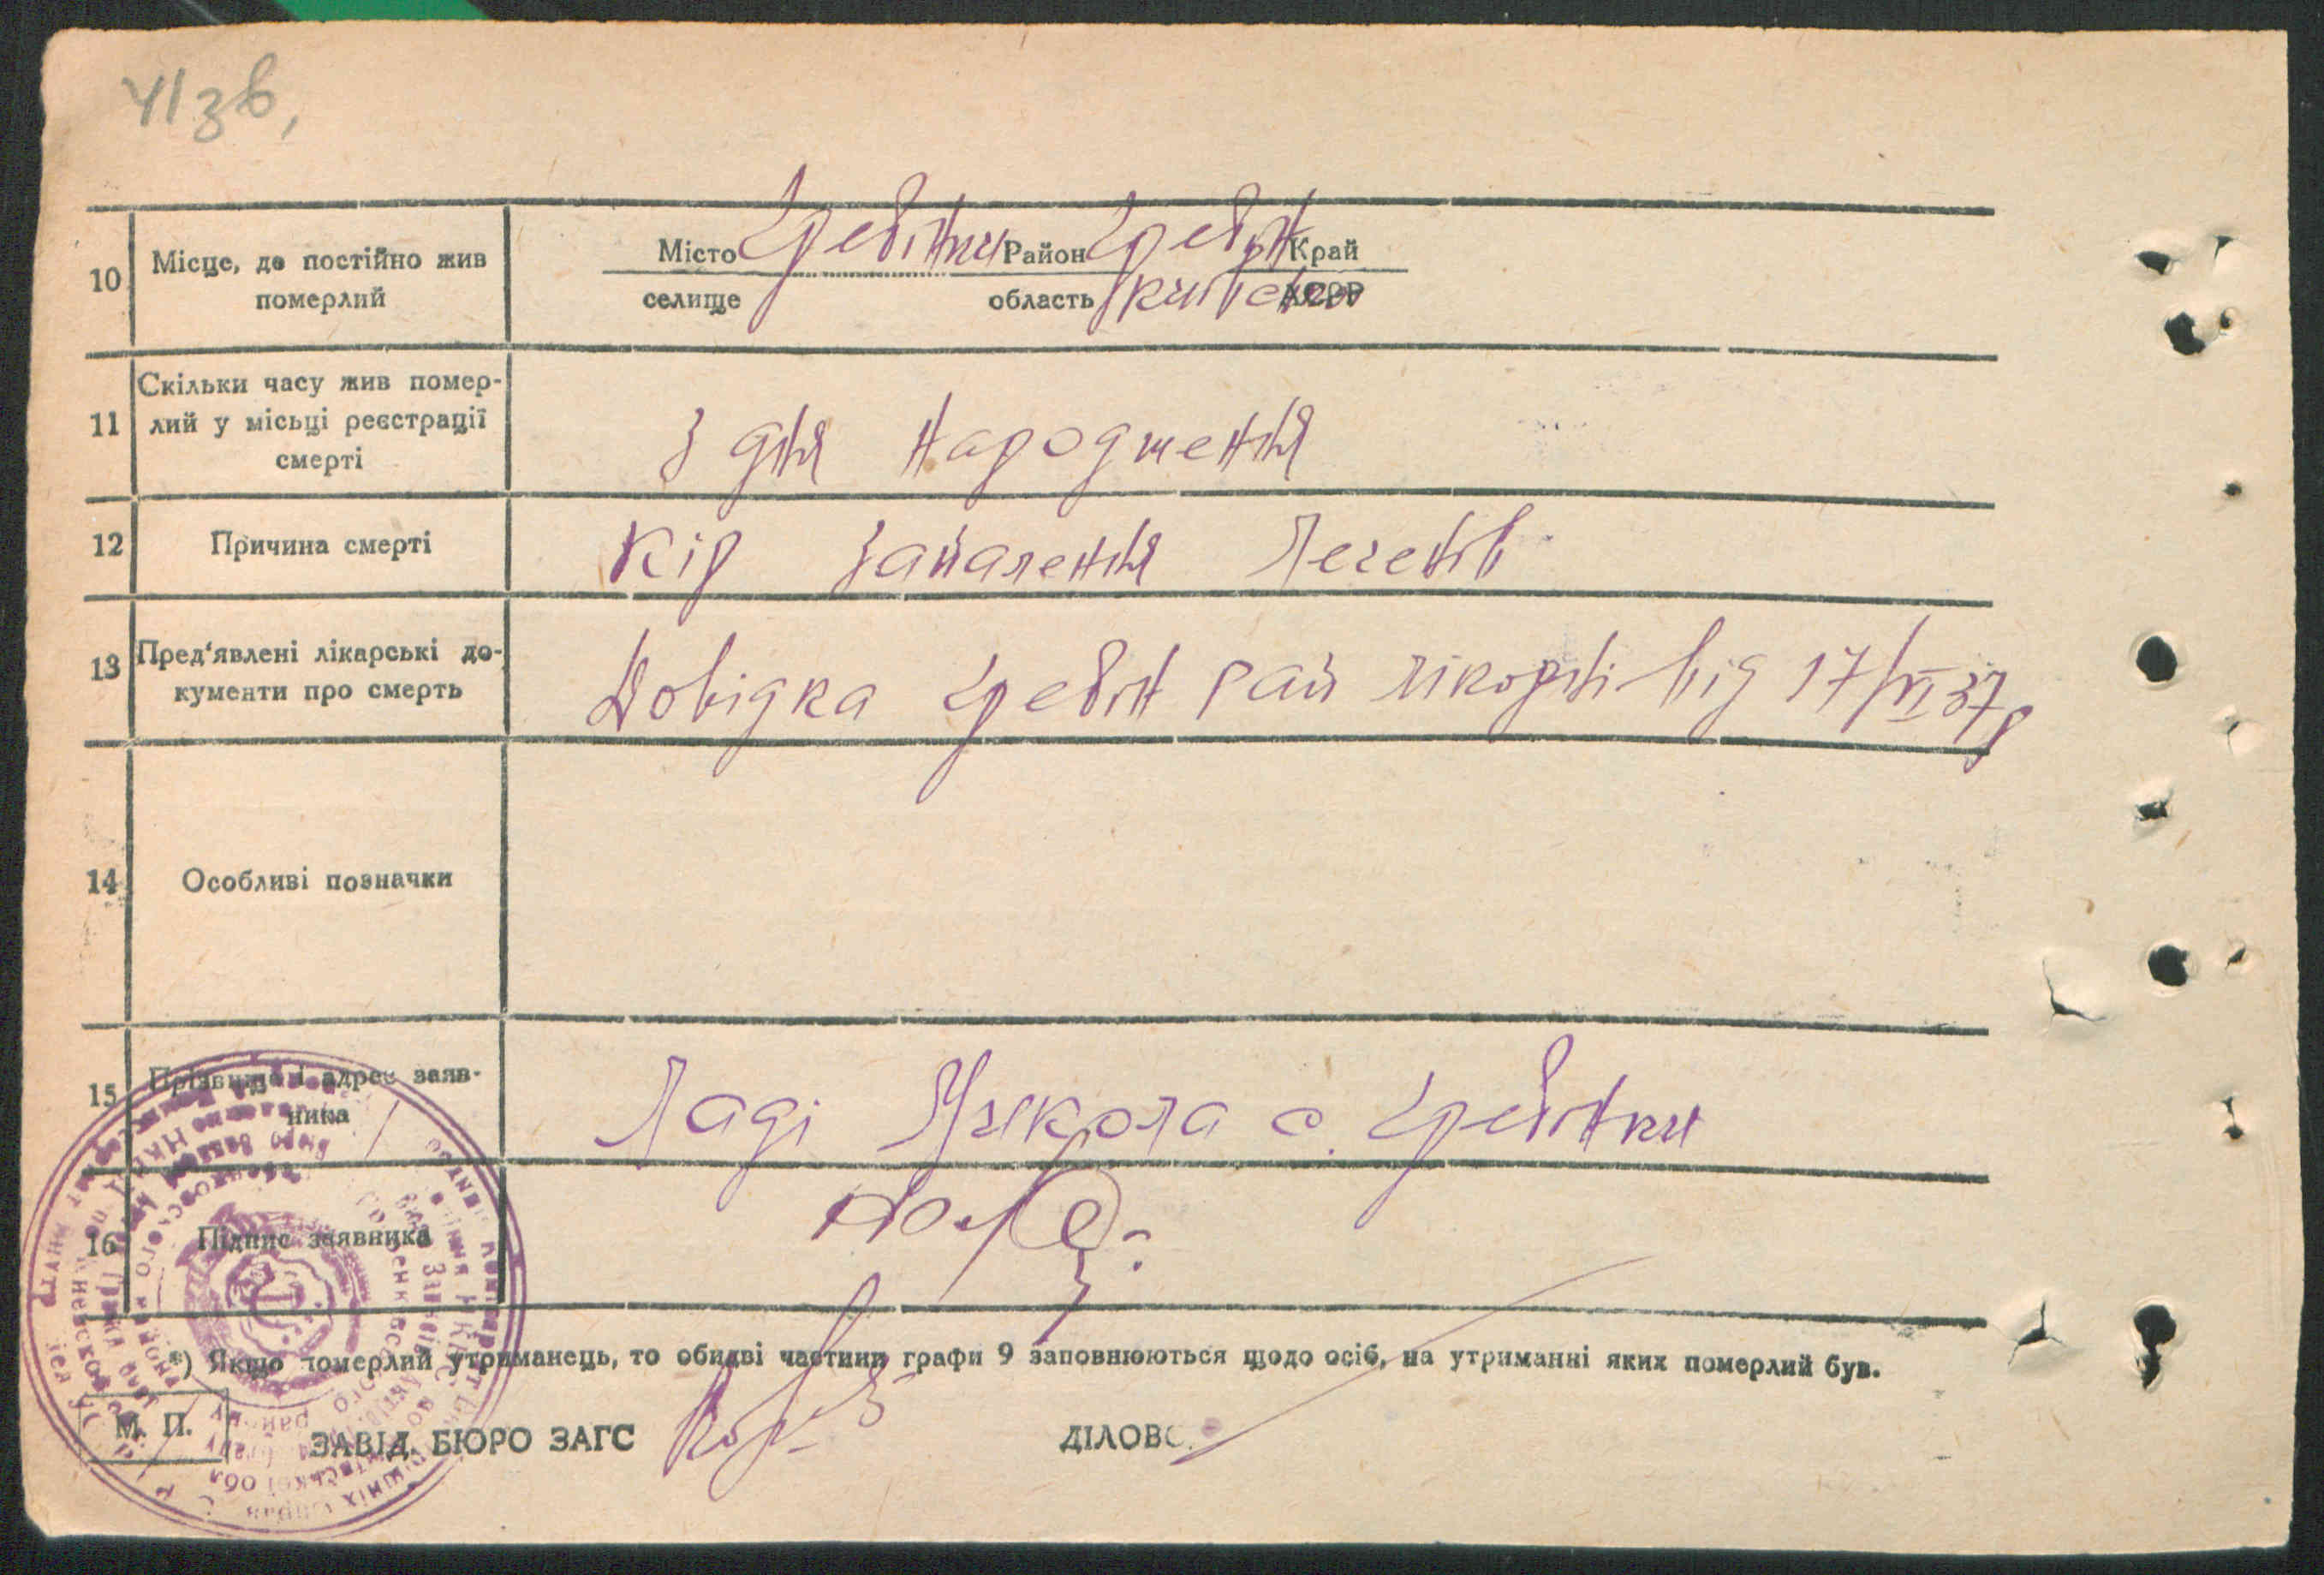 41зв,
10 Місце, де постійно жив Місто Гребінки Район Гребін Край
померлий селище область Київська АСРР
Скільки часу жив помер-
11 лий у місьці реєстрації з дня народження
смерті
12 Причина смерті Кір запалення легенів
13 Пред'явлені лікарські до- Довідка Гребін рай лікорні від 17/VI 37р
кументи про смерть
14 Особливі позначки
15 Прізвище і адрес заяв- Ладі Микола с. Гребінки
ника
16 Підпис заявника
*) Якщо померлий утриманець, то обидві частини графи 9 заповнюються щодо осіб, на утриманні яких померлий був.
М. П. ЗАВІД. БЮРО ЗАГС ДІЛОВО